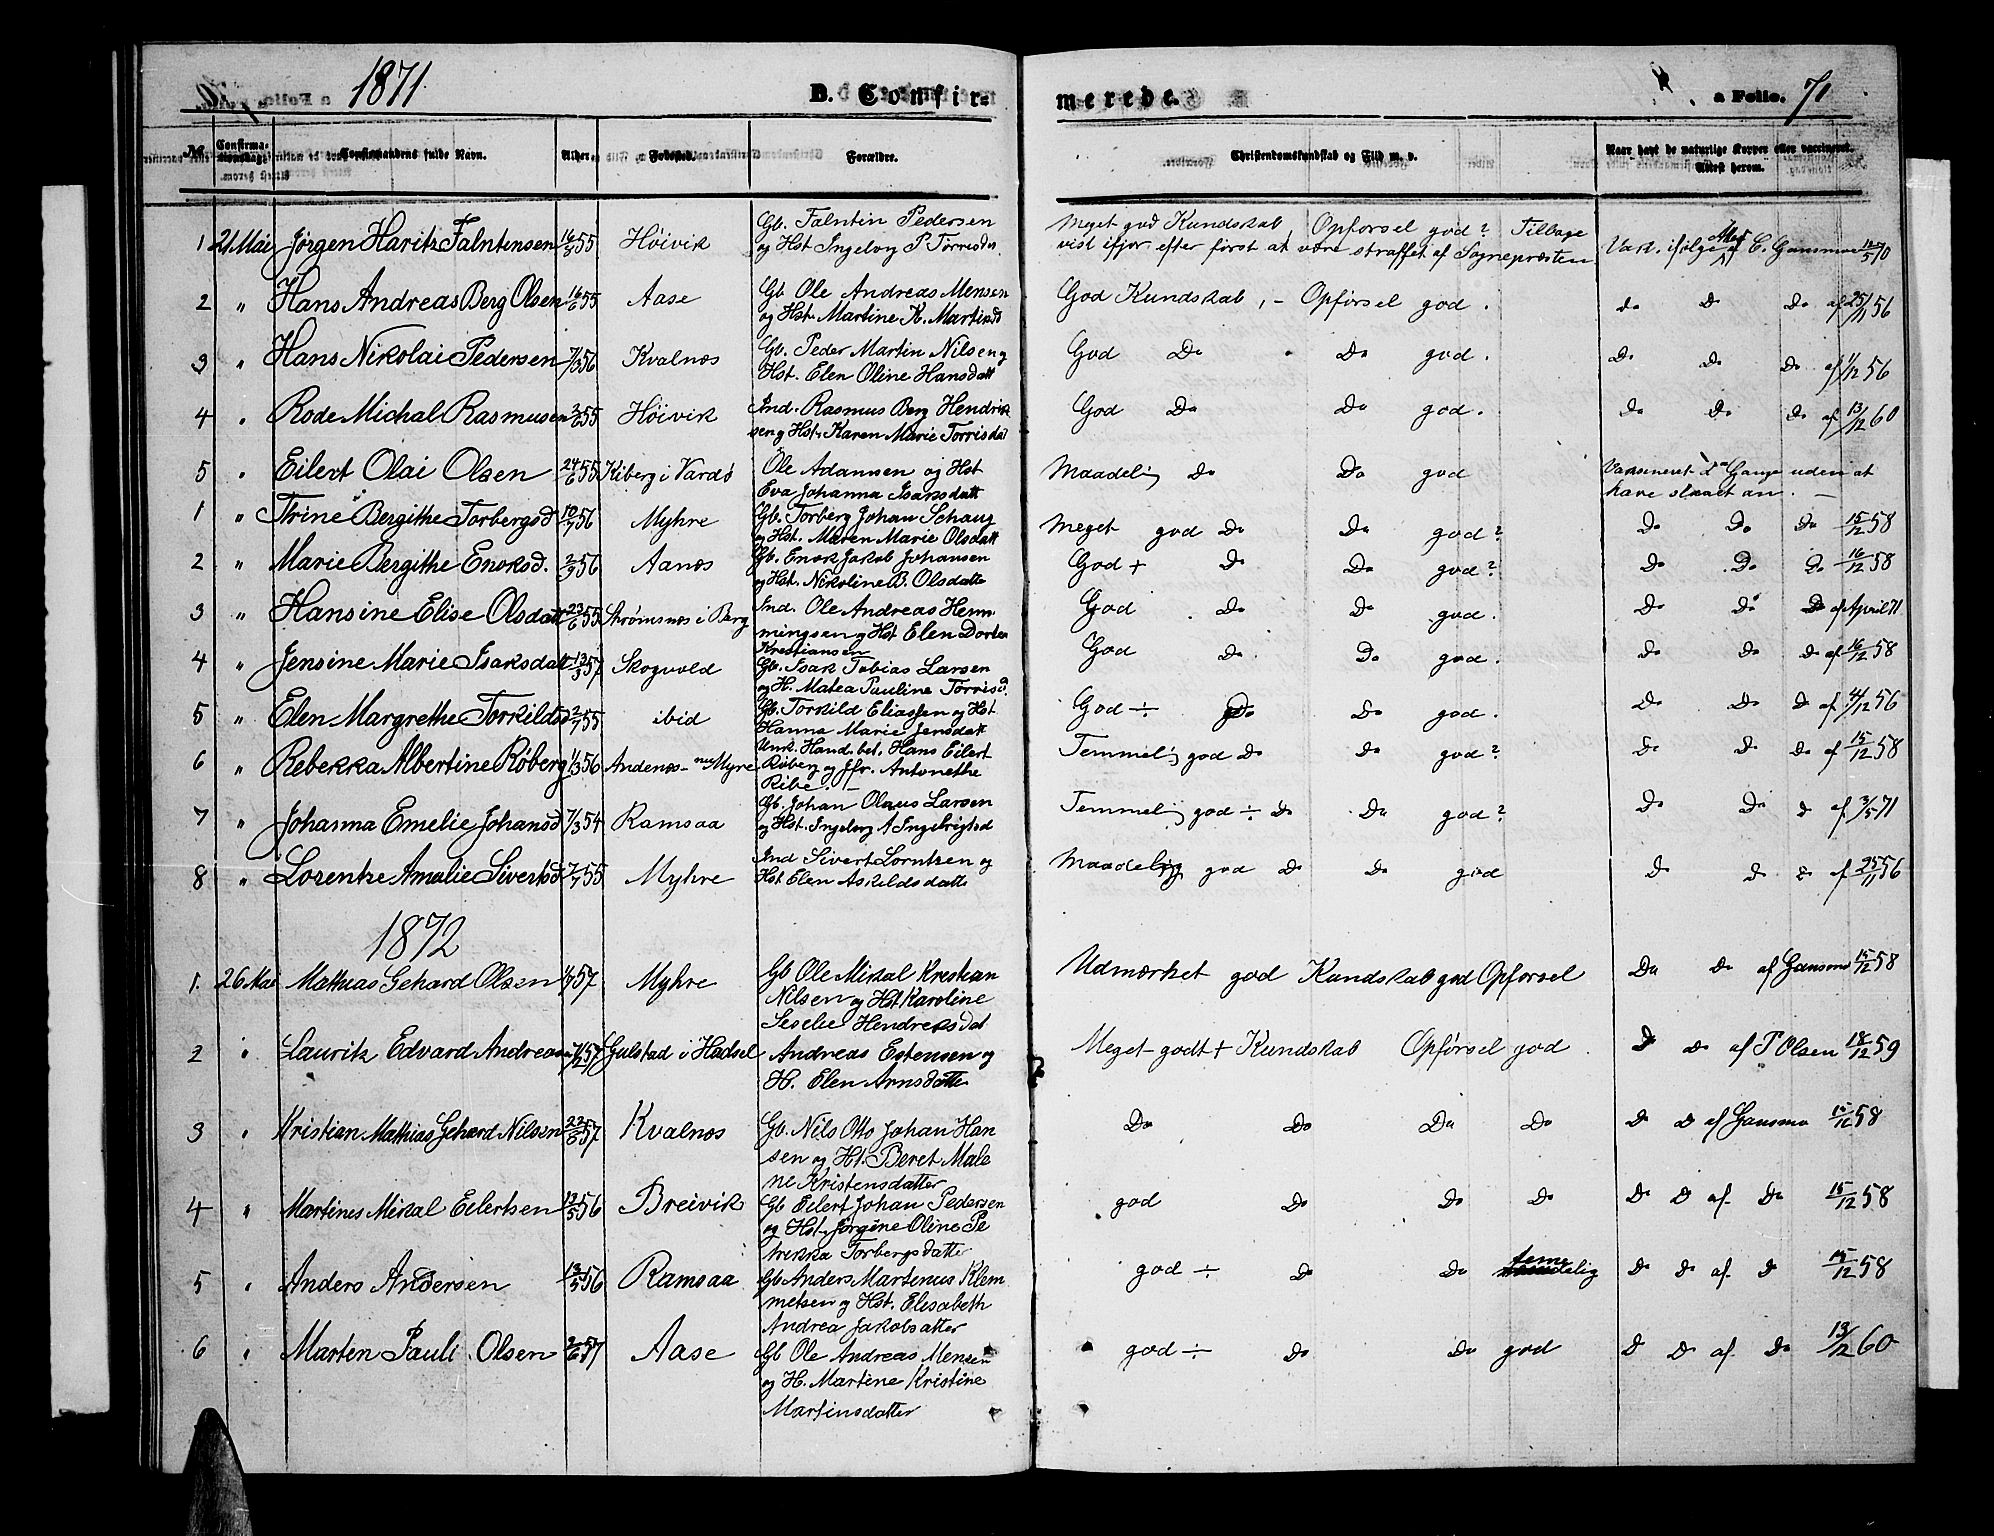 1871 B. Confir= merede. a Folio. 71
No. Confirma-tionsdag. Confirmandens fulde Navn. Alder. Fødested. Forældre. Christendomskundskab og Flid m. v. Naar havt de naturlige Kopper eller vaccineret. Attest herom.
1 21 Mai Jørgen Haritz Falntensen 16/3 55 Høivik Gb. Falntin Pedersen Meget god Kundskab, Opførsel god? Tilbage
og Hst Ingeborg P Torrisdtr. vist ifjor efter først at være straffet af Sognepræsten Vak. ifølge Attest af C. Gansmoe 12/5 70
2 " Hans Andreas Berg Olsen 16/6 55 Aase Gb Ole Andreas Mensen God Kundskab, - Opførsel god. Do Do Do af 25/11 56
og Hst. Martine K. Martinsd
3 " Hans Nikolai Pedersen 7/3 56 Kvalnæs Gb. Peder Martin Nilsen og God Do Do god. Do Do Do af 1/12 56
Hst. Elen Oline Hansdatt
4 " Rode Michal Rasmusen 2/6 55 Høivik Ind. Rasmus Berg Hendrik God Do Do god. Do Do Do af 13/12 60
sen og Hst. Karen Marie Torrisdat
5 " Eilert Olai Olsen 24/6 55 Kiberg i Vardø Ole Adamsen og Hst Maadelig Do Do god Vaksineret 2de Gange uden at
Eva Johanna Isaksdatt have slaaet an. —
1 " Trine Bergithe Torbergsd 10/7 56 Myhre Gb. Torberg Johan Schaug Meget god Do Do god? Do Do Do 15/12 58
og Hst. Maren Marie Olsdatt
2 " Marie Bergithe Enoksd. 2/9 56 Aanæs Gb. Enok Jakob Johansen God + Do Do god? Do Do Do 16/12 58
og Hst. Nikoline B. Olsdatte
3 " Hansine Elise Olsdatt 23/6 55 Strømsnæs i Berg Ind. Ole Andreas Hem God Do Do god. Do Do Do af April 71
mingsen og Hst Elen Dortea
Krestiansen
4 " Jensine Marie Isaksdatt 13/3 57 Skogvold Gb. Isak Tobias Larsen God Do Do god. Do Do Do af 16/12 58
og H. Matea Pauline Torrisd.
5 " Elen Margrethe Torkildsd 2/7 55 ibid Gb. Torkild Eliassen og Hst God ÷ Do Do god. Do Do Do af 4/12 56
Hanna Marie Jensdatt
6 " Rebekka Albertine Røberg 1/3 56 Andenæs - nu Myre Unk. Hand. bet. Hans Eilert Temmelig god Do Do god? Do Do Do af 15/12 58
Røberg og Jfr. Antonethe
Ribe. —
7 " Johanna Emelie Johansd 7/3 54 Ramsaa Gb. Johan Olaus Larsen Temmelig god ÷ Do Do god? Do Do D af 3/5 71
og Hst. Ingeborg A Ingebrigtsd
8 " Lorentze Amalie Sivertsd 7/7 55 Myhre Ind Sivert Lorntzen og Maadelig god Do Do god Do Do Do af 25/11 56
Hst Elen Askildsdatte
1872
1. 26 Mai Mathias Gehard Olsen 1/7 57 Myhre Gb Ole Mikal Krestian Udmærket god Kundskab god Opførsel Do Do af Gansmo 15/12 58
Nilsen og Hst Karoline
Seselie Hendreksdat
2 " Lauritz Edvard Andreasen 7/12 57 Gulstad i Hadsel Andreas Estensen og Meget godt + Kundskab Opførsel god. D Do af P Olsen 18/12 59
H. Elen Arnsdatte
3 " Kristian Mathias Gehard Nilsen 22/6 57 Kvalnæs Gb. Nils Otto Johan Han Do Do Do Do D D af Gansmo 15/12 58
sen og Ht. Beret Male
ne Kristensdatter
4 " Martines Mikal Eilertsen 12/5 56 Breivik Gb Eilert Johan Pedersen god Do Do Do D D af. Do 15/12 58
og Hst. Jørgine Oline Pe
trikka Torbergsdatter
5 " Anders Andersen 13/5 56 Ramsaa Gb Anders Martenus Klem god ÷ Do Do temmelig D D af. D 15/12 58
metsen og Hst. Elisabeth
Andrea Jakobsatter
6 " Marten Pauli Olsen 2/6 57 Aase Gb Ole Andreas Mensen god ÷ Do Do god D D af. Do 13/12 60
og H. Martene Kristine
Martinsdatter